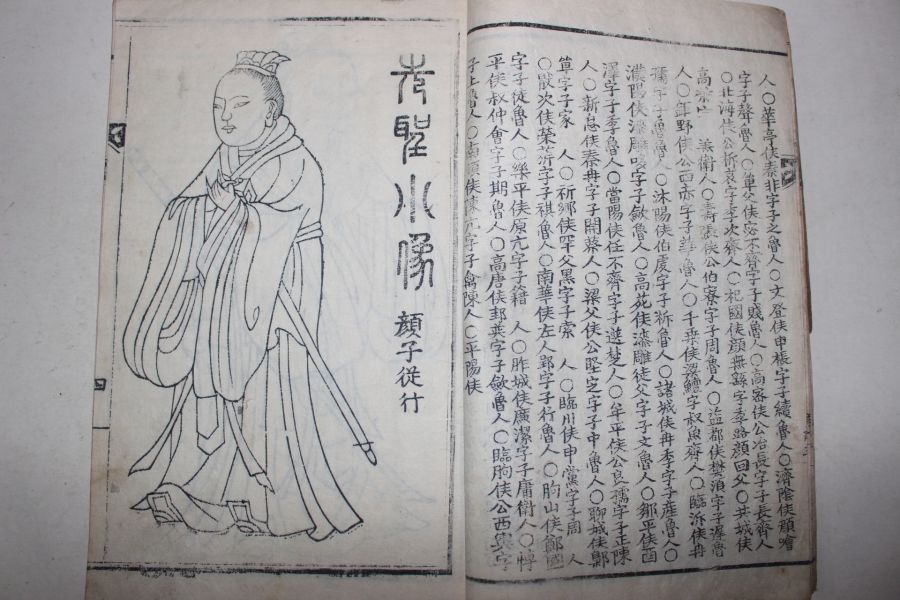 人○華亭侯秦非字子之魯人○文登侯申棖字子續魯人○濟陰侯顏噲
字子聲魯人○單父侯宓不齊字子賤魯人○高密侯公冶長字子長齊人
○北海侯公晳哀字季次齊人○杞國侯顏無繇字季路顏回父○共城侯
高柴 衛人○壽張侯公伯寮字子周魯人○益都侯樊須字子遲魯
人○鉅野侯公西赤字子華魯人○千乘侯梁鱣字叔魚齊人○臨沂侯冉
孺字子魯魯人○沭陽侯伯虔字子析魯人○諸城侯冉季字子產魯人○
濮陽侯漆雕哆字子歛魯人○高苑侯漆雕徒父字子文魯人○鄒平侯商
澤字子季魯人○當陽侯任不齊字子選楚人○牟平侯公良孺字子正陳
人○新息侯秦冉字子開蔡人○梁父侯公堅定字子中魯人○聊城侯鄡
單字子家 人○祈鄉侯罕父黑字子索 人○臨川侯申黨字子周 人
○厭次侯榮旂字子祺魯人○南華侯左人郢字子行魯人○朐山侯鄭國
字子徒魯人○樂平侯原亢字子籍 人○胙城侯廉潔字子庸衛人○博
平侯叔仲會字子期魯人○高唐侯邽巽字子歛魯人○臨朐侯公西輿字
子上魯人○南頓侯陳亢字子禽陳人○平陽侯
先聖小像
顏子從行